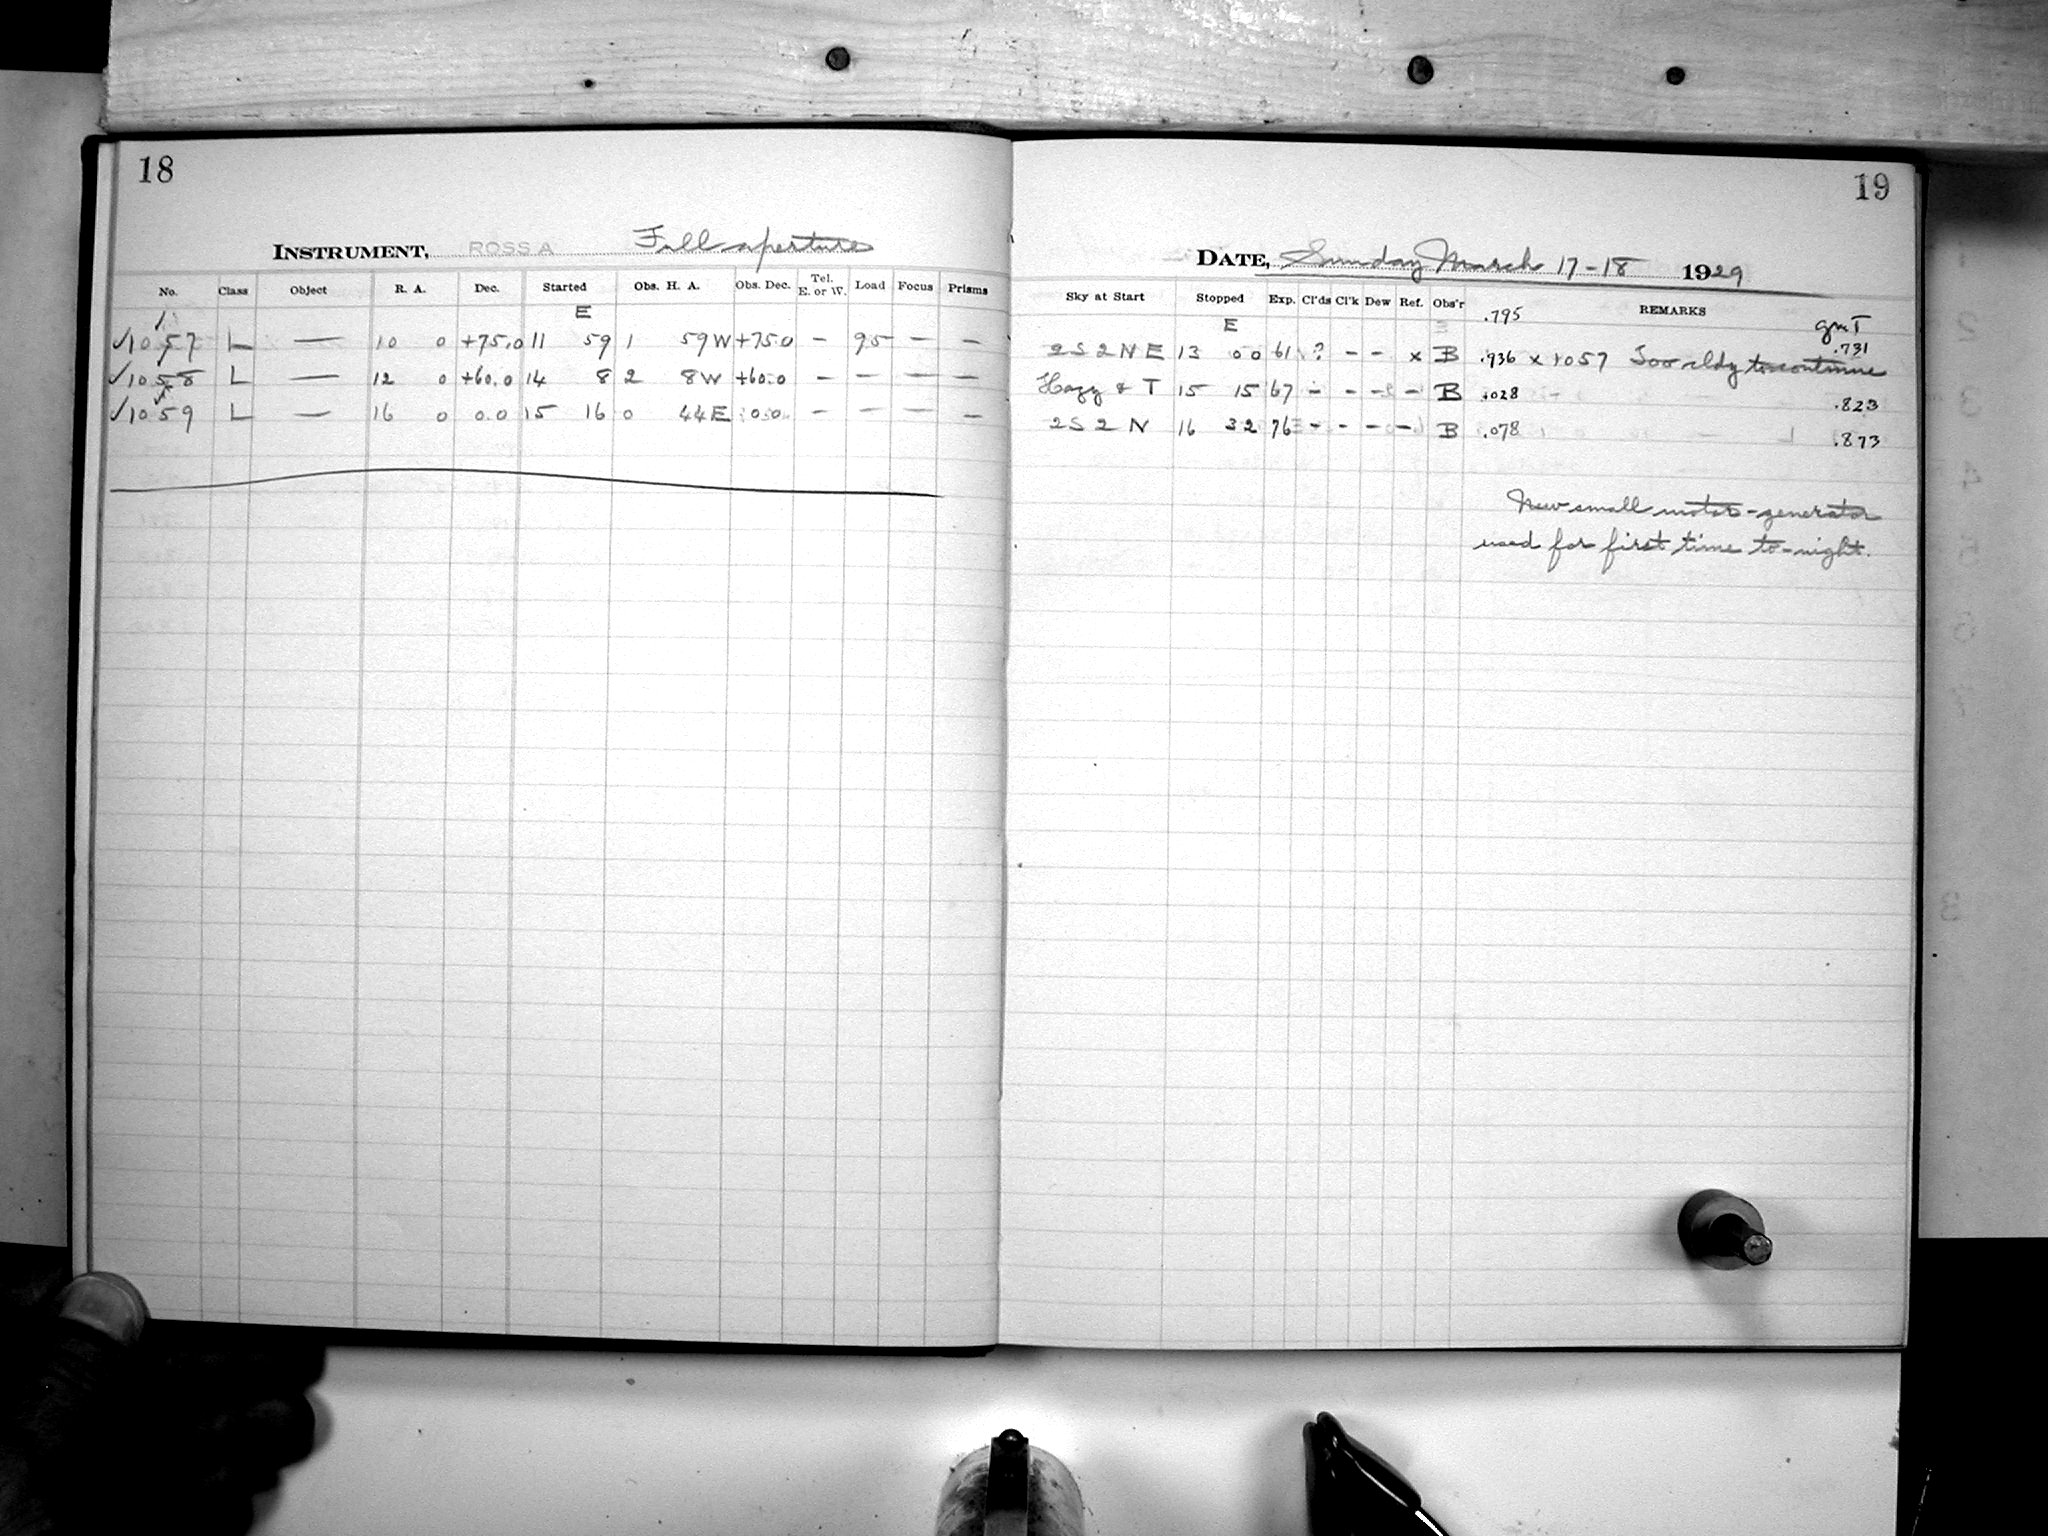 18
INSTRUMENT, ROSS A Full aperture
No. Class Object R. A. Dec. Started Obs. H. A. Obs. Dec. Tel. E. or W. Load Focus Prisms
E
✓1057 L — 10 0 +75.0 11 59 1 59W +75.0 – 95 — —
✓1058 L — 12 0 +60.0 14 8 2 8W +60.0 – — — —
✓1059 L — 16 0 0.0 15 16 0 44E 0.0 – — — —
19
DATE, Sunday March 17-18 1929
Sky at Start Stopped Exp. Cl'ds Cl'k Dew Ref. Obs'r REMARKS
E .795 GMT
2S 2N E 13 00 61 ? – – x B .936 x 1057 Too cldy to continue .731
Hazy & T 15 15 67 – – – – B .028 .823
2S 2N 16 32 76 – – – – B .078 .873
New small motor-generator
used for first time to-night.